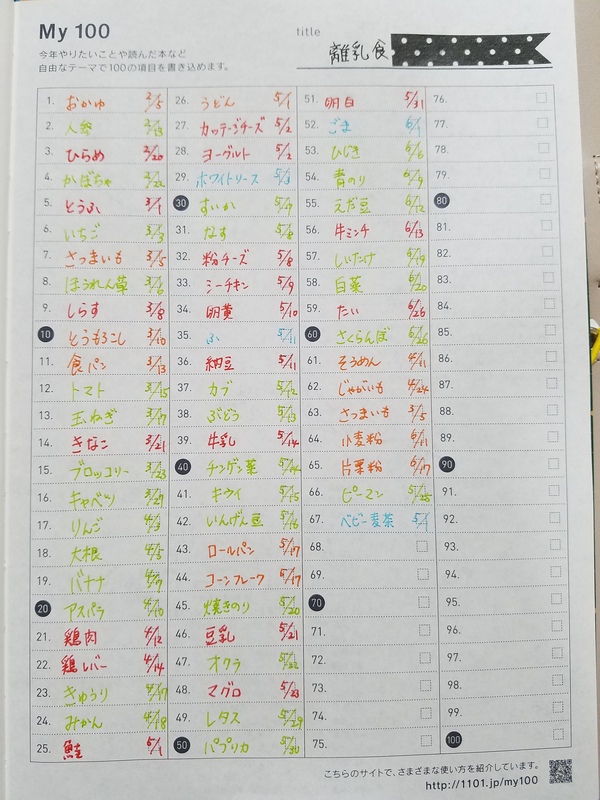 My 100
今年やりたいことや読んだ本など
自由なテーマで100の項目を書き込めます。
title
離乳食
1. おかゆ 2/5
2. 人参 2/13
3. ひらめ 2/20
4. かぼちゃ 2/22
5. とうふ 3/1
6. いちご 3/3
7. さつまいも 3/5
8. ほうれん草
9. しらす 3/8
10 とうもろこし 3/10
11. 食パン 3/13
12. トマト 3/15
13. 玉ねぎ 3/17
14. きなこ 3/21
15. ブロッコリー 3/23
16. キャベツ 3/27
17. りんご 4/3
18. 大根 4/5
19. バナナ 4/7
20 アスパラ 4/10
21. 鶏肉 4/12
22. 鶏レバー 4/14
23. きゅうり 4/17
24. みかん 4/18
25. 鮭 5/1
26. うどん 5/1
27. カッテージチーズ 5/2
28. ヨーグルト 5/2
29. ホワイトソース 5/3
30 すいか 5/4
31. なす 5/8
32. 粉チーズ 5/8
33. シーチキン 5/9
34. 卵黄 5/10
35. ふ 5/11
36. 納豆 5/11
37. カブ 5/12
38. ぶどう 5/13
39. 牛乳 5/14
40 チンゲン菜 5/14
41. キウイ 5/15
42. いんげん豆 5/16
43. ロールパン 5/17
44. コーンフレーク 5/17
45. 焼きのり 5/20
46. 豆乳 5/21
47. オクラ 5/22
48. マグロ 5/23
49. レタス 5/29
50 パプリカ 5/30
51. 明日 5/31
52. ごま 6/1
53. ひじき 6/6
54. 青のり 6/9
55. えだ豆 6/12
56. 牛ミンチ 6/13
57. しいたけ 6/19
58. 白菜 6/20
59. たい 6/26
60 さくらんぼ 6/26
61. そうめん 4/11
62. じゃがいも 4/24
63. さつまいも 3/5
64. 小麦粉 6/11
65. 片栗粉 6/17
66. ピーマン 5/25
67. ベビー麦茶 5/1
68.
69.
70
71.
72.
73.
74.
75.
76.
77.
78.
79.
80
81.
82.
83.
84.
85.
86.
87.
88.
89.
90
91.
92.
93.
94.
95.
96.
97.
98.
99.
100
こちらのサイトで、さまざまな使い方を紹介しています。
http://1101.jp/my100